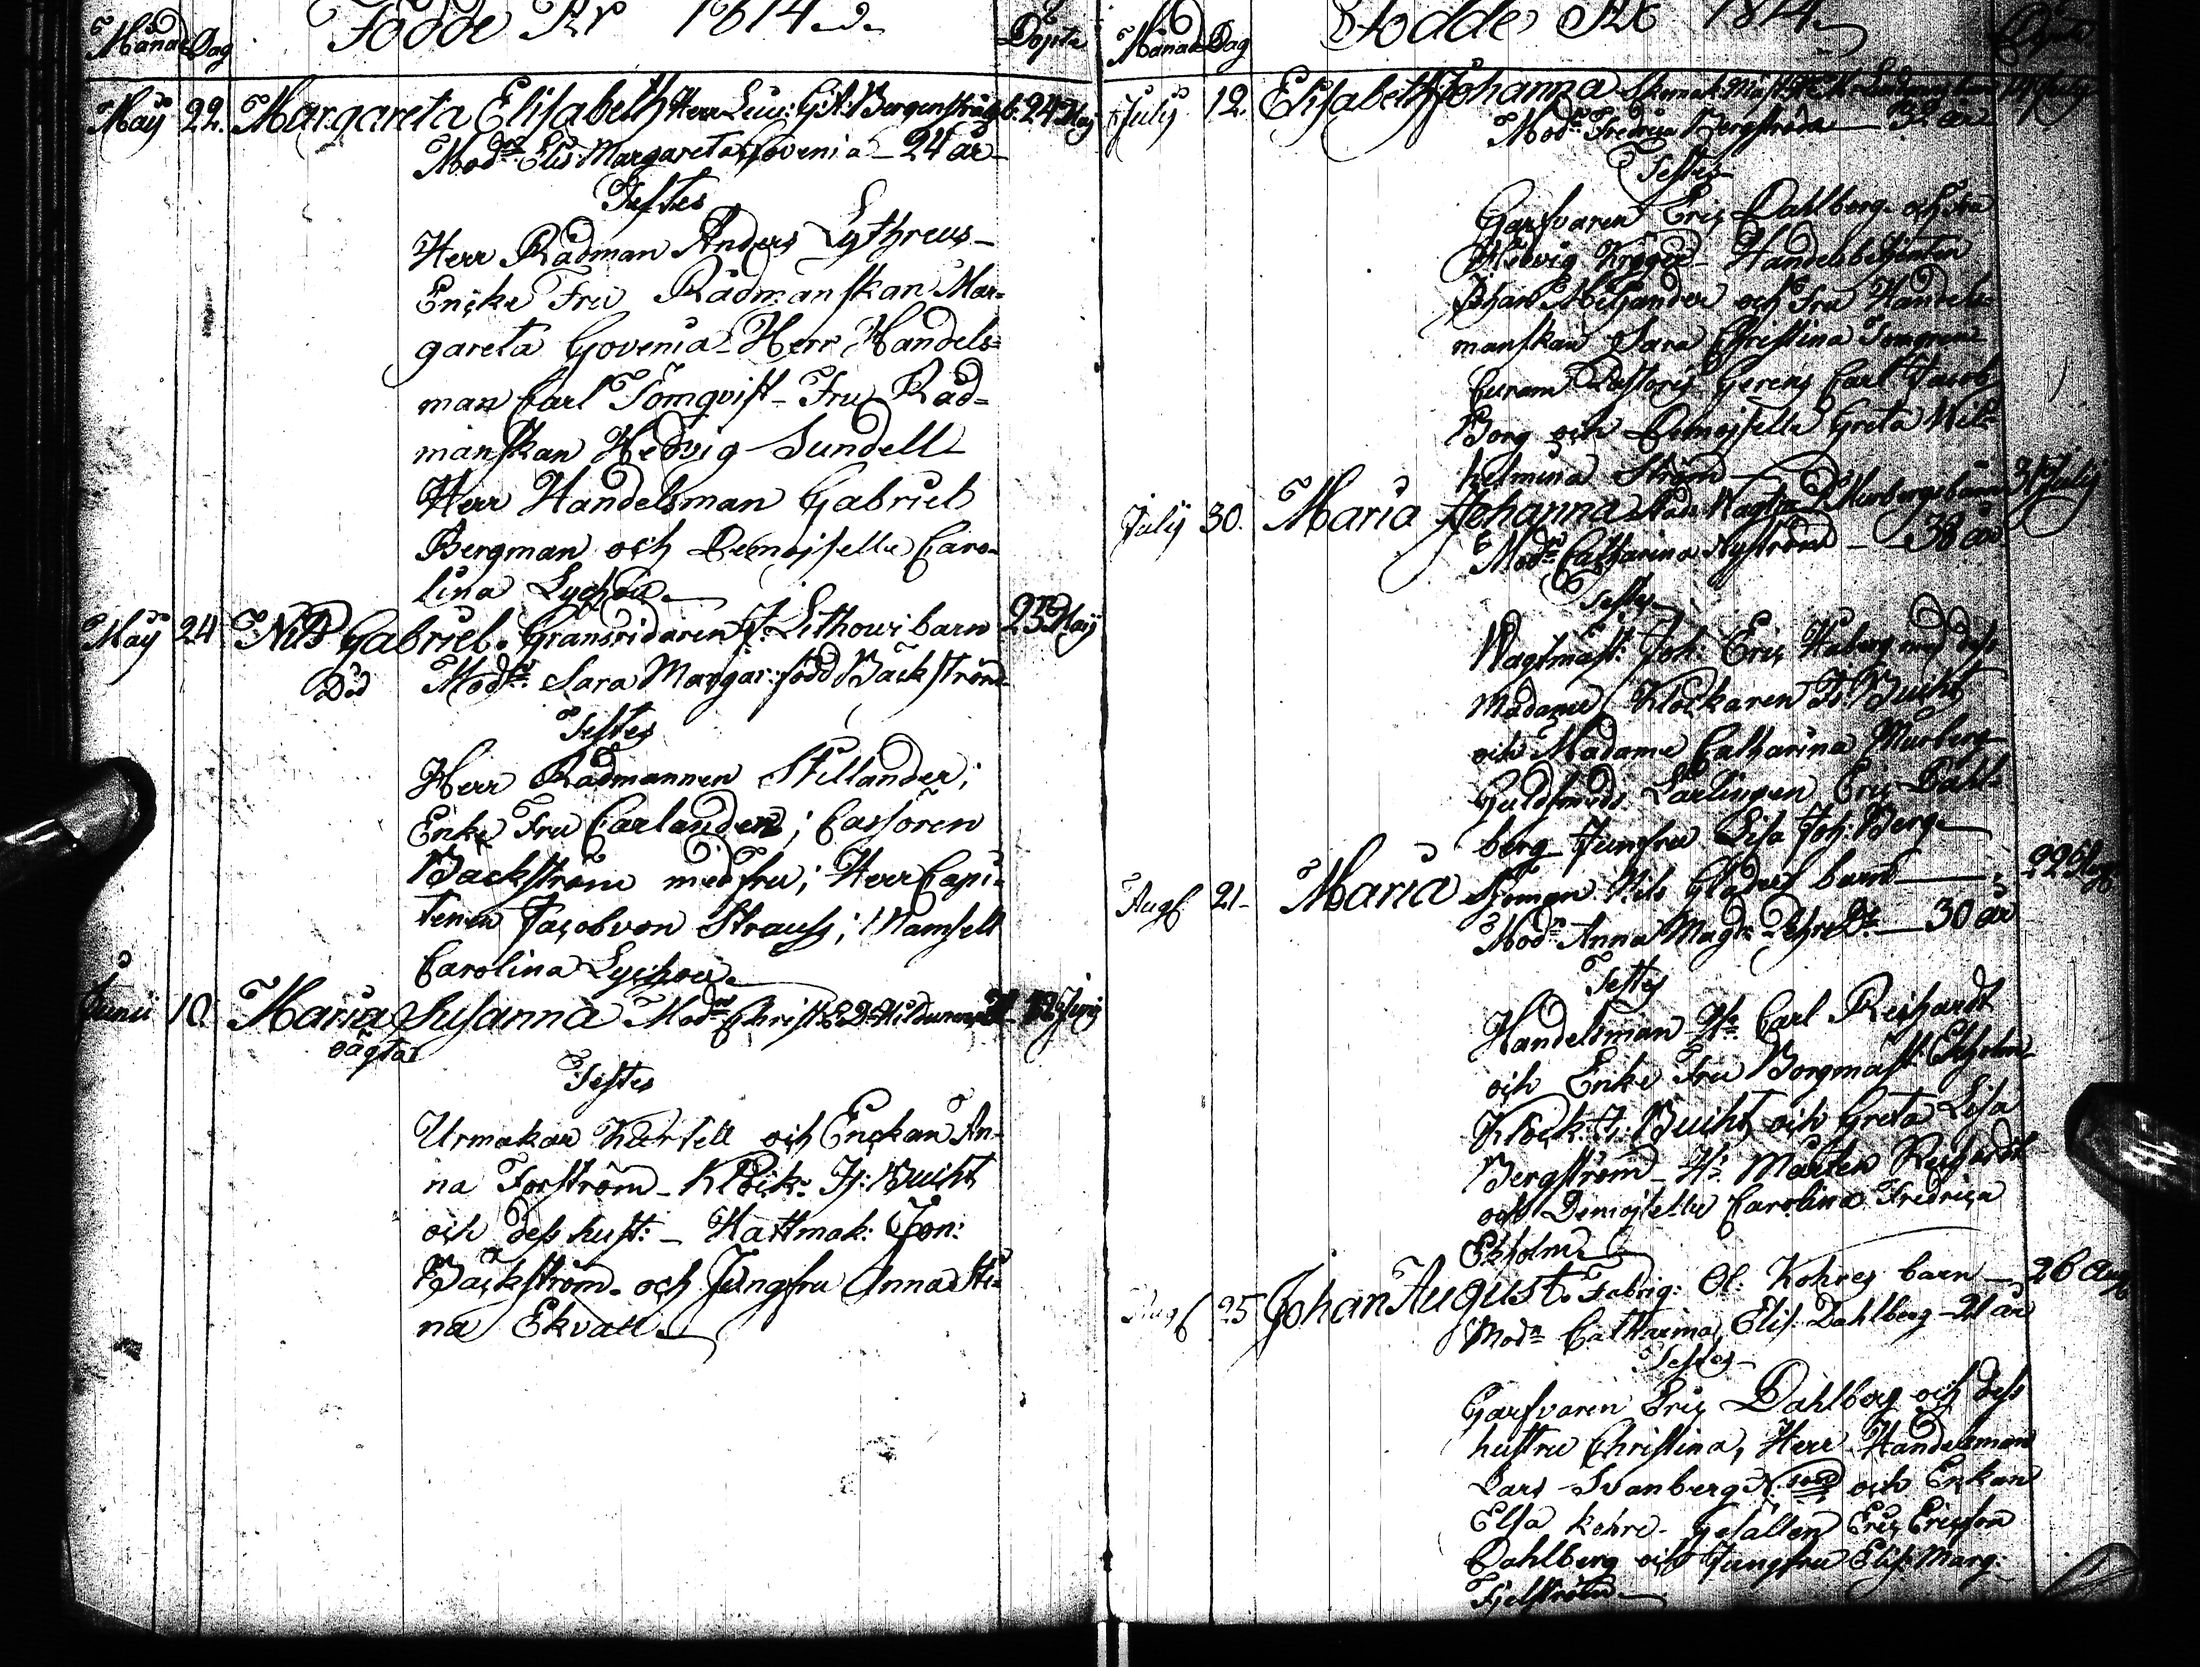 Födde År 1814
Månad Dag Döpte
May 22. Margareta Elisabeth Herr b: 24 May
Mod:n Elis Margareta Govenia - 24 år -
Testes
Herr Rådman Anders Lythreus -
Encke Fru Rådmanskan Mar-
gareta Govenia - Herr Handels-
man Carl Törnqvist - Fru Råd-
manskan Hedvig Sundell
Herr Handelsman Gabriel
Bergman och Demoiselle Caro-
lina
May 24 Nils Gabriel. Gränsridaren J: Lithovi barn 25 May
Död Mod:n Sara Margar: född Bäckström
Testes
Herr Rådmannen Stillander;
Enke Fru Carlander; Cassören
Bäckström med fru; Herr Capi-
tenen Jacob von Strauss; Mamsell
Carolina
Junii 10. Maria Susanna Mod:n Christ: Junij
oägta
Testes
Urmakar Kurtell och Enckan An-
na Forström - Klock: Is: Bucht
och dess hust: - Hattmak: Jon:
Bäckström - och Jungfru Anna Sti-
na Ekvall
Födde År 1814
Månad Dag
July 12. Elisabeth Johanna
Mod:n Fredrica Bergström - 32 år
Testes
Garfvaren Eric Dahlberg och Fru
Hedvig Handelsbetjenten
Johan och Fru Handels-
manskan Sara Christina
Pastoris Gerens Carl Jacob
Borg och Demoiselle Greta Wil-
helmina Ström
July 30. Maria Johanna barn 31 July
Mod:n Catharina Nyström - 38 år
Testes
Wagtmäst: Joh: Eric med dess
Madame Klockaren Is: Bucht
och Madame Catharina Murberg
Guldsmeds Lärlingen Eric Dahl-
berg Jungfru Lisa Joh: Berg
Aug 21 - Maria Sjöman Nils barn 22 Aug
Mod:n Anna Magn: - 30 år
Testes
Handelsman H:r Carl Reihardt
och Enke Fru Borgmäst: Ekholm
Klock: I: Bucht och Greta Lisa
Bergström - H:r Mårten
och Demoiselle Carolina Fredrica
Ekholm
Aug 25 Johan August. Fabriq: Ol: Kohres barn - 26 Aug
Mod:n Catharina Elis: Dahlberg - 21 år
Testes -
Garfvaren Eric Dahlberg och dess
hustru Christina, Herr Handelsman
Lars Svanberg och Enkan
Elsa Kohre - Gesällen Eric Ericsson
Dahlberg och Jungfru Elis: Marg:
Fjelström